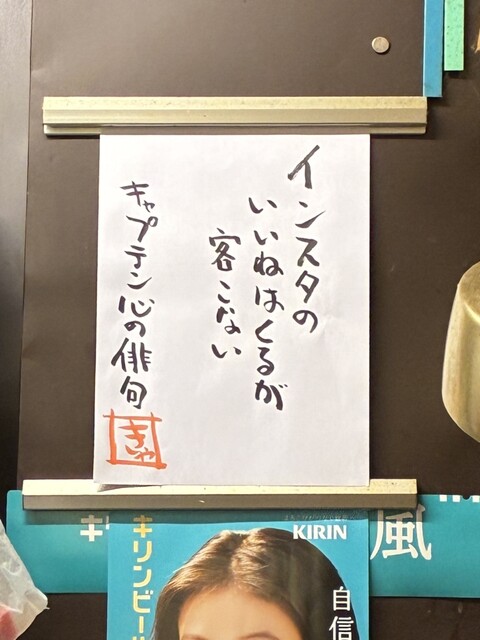 インスタの
いいねはくるが
客こない
キャプテン心の俳句
きゃ
KIRIN
キリンビール
自信
風